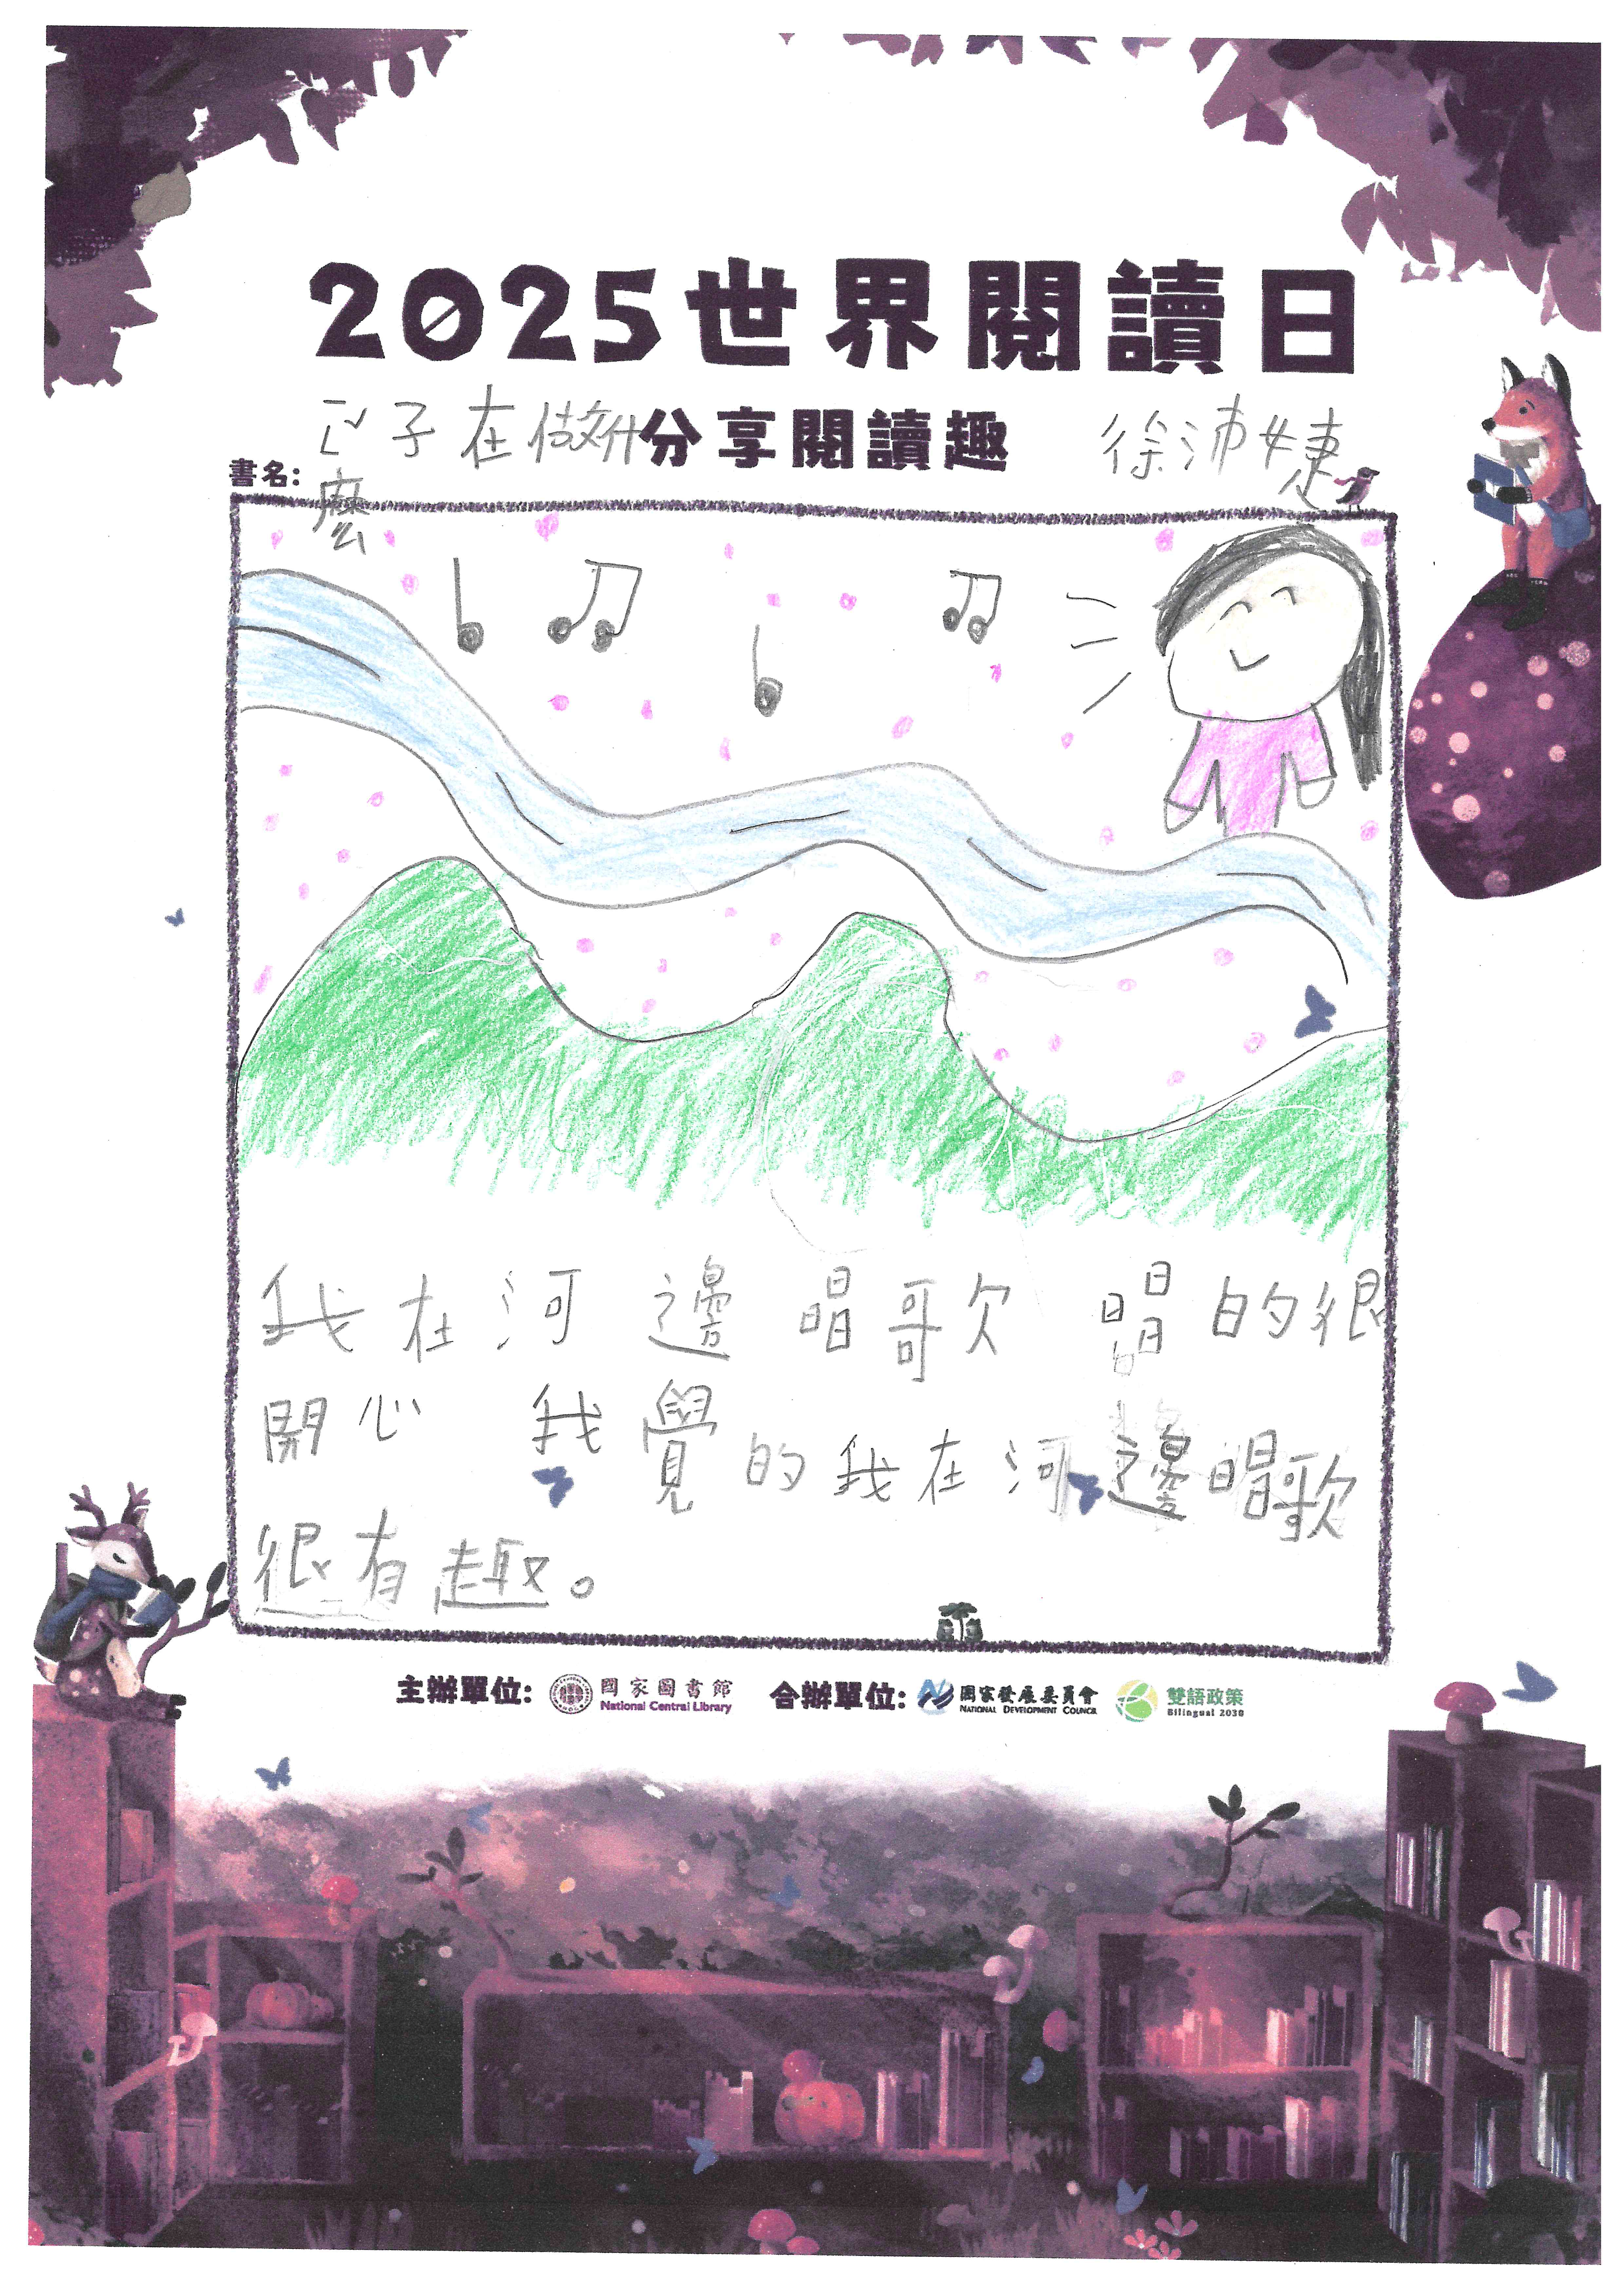 2025世界閱讀日
子在做什
分享閱讀趣
徐沛婕
書名:
麼
我在河邊唱歌 唱的很
開心 我覺的我在河邊唱歌
很有趣。
主辦單位: 國家圖書館 National Central Library 合辦單位: 國家發展委員會 NATIONAL DEVELOPMENT COUNCIL 雙語政策 Bilingual 2030